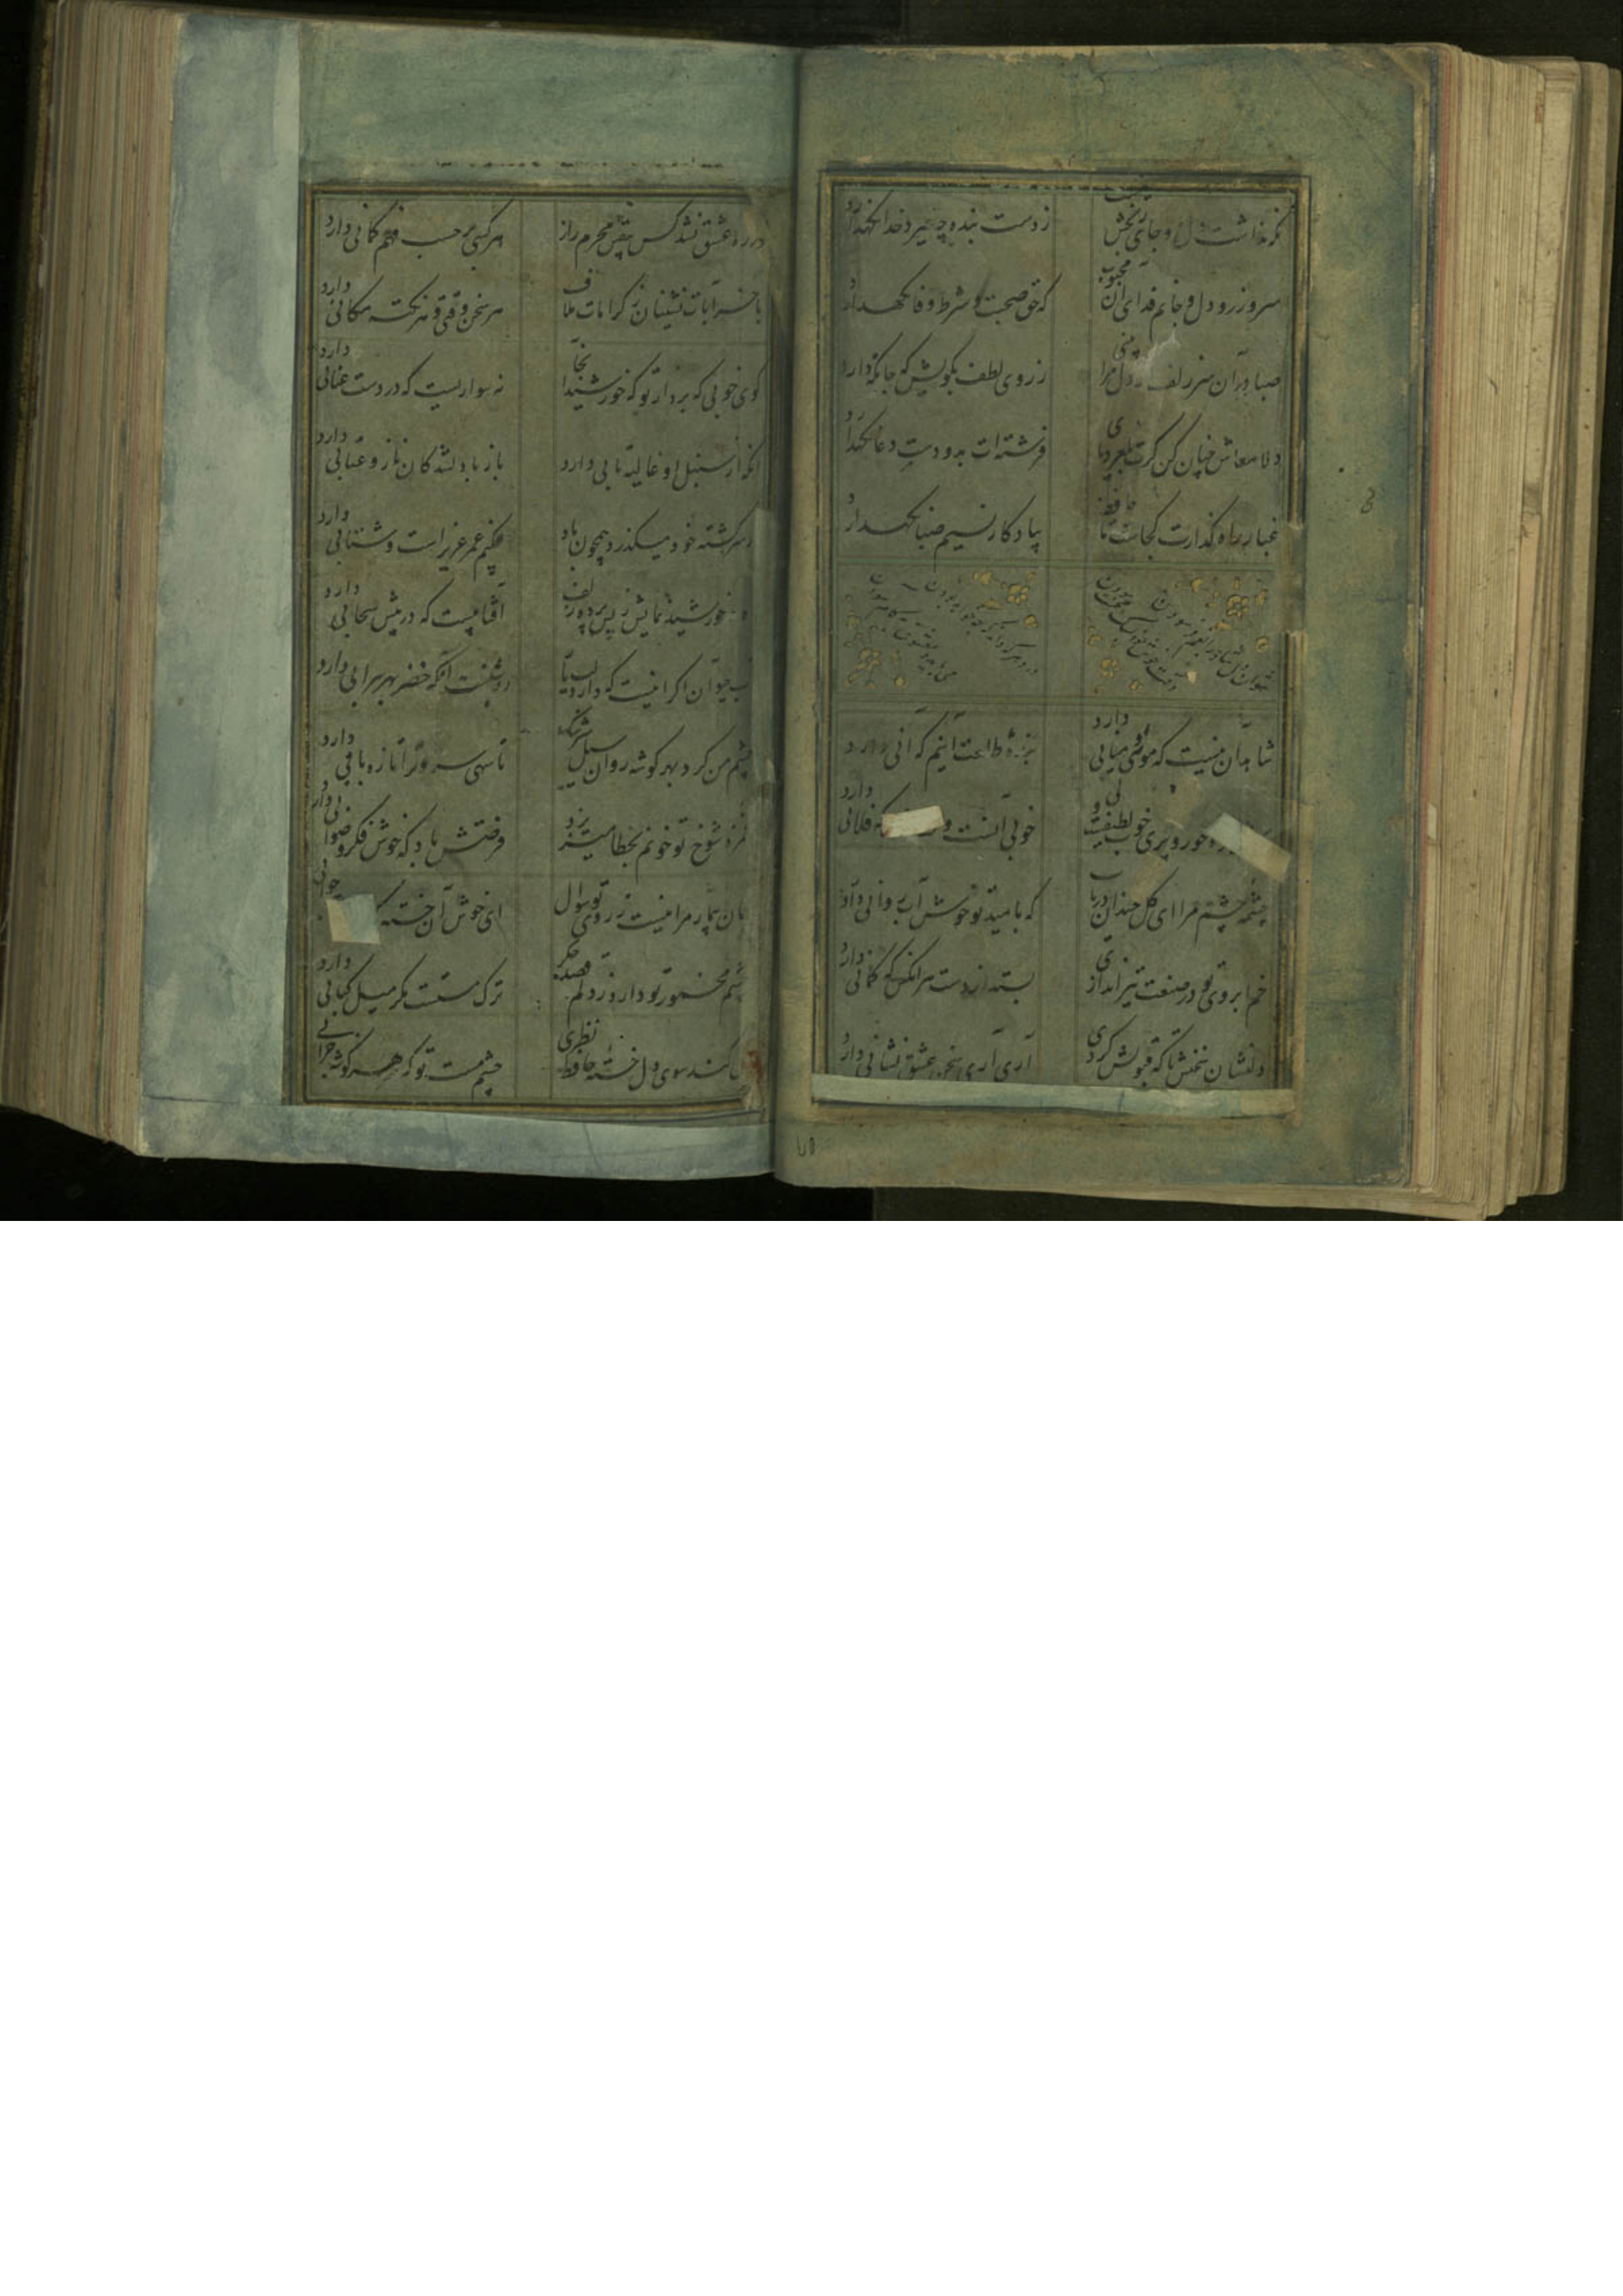 نگه نداشت دل و جای رنجش نیست
ز دست بنده چه خیزد خدا نگهدارد
سر و زر و دل و جانم فدای آن محبوب
که حق صحبت و شرط وفا نگهدارد
صبا در آن سر زلف ار دل مرا بینی
ز روی لطف بگویش که جا نگه دارد
دلا معاش چنان کن که گر بلغزد پای
فرشته‌ات بدو دست دعا نگهدارد
غبار راه گذارت کجاست تا حافظ
بیادکار نسیم صبا نگهدارد
شاهد آن نیست که موئی و میانی دارد
بندهٔ طلعت اینم که آنی دارد
حور و پری خوب لطیفست ولی
خوبی آنست و که فلانی دارد
چشمه چشم مرا ای گل خندان دریاب
که بامید تو خوش آب روانی دارد
خم ابروی تو در صنعت تیراندازی
بستد از دست هر آنکس که کمانی دارد
دلنشان شد سخنش تا که قبولش کردی
آری آری سخن عشق نشانی دارد
در ره عشق نشد کس بیقین محرم راز
هر کسی بر حسب فهم کمانی دارد
با خرابات نشینان ز کرامات ملاف
هر سخن وقتی و هر نکته مکانی دارد
گوی خوبی که برد از تو که خورشید آنجا
نه سواریست که در دست عنانی دارد
آنکه از سنبل او غالیه تابی دارد
باز با دلشدگان ناز و عتابی دارد
از سر کشته خود میگذرد همچون باد
چکنم عمر عزیز است و شتابی دارد
ماه خورشید نمایش ز پس پرده زلف
آفتابیست که در پیش سحابی دارد
آب حیوان اگر اینست که دارد لب یار
روشنست آنکه خضر بهره سرابی دارد
چشم من کرد بهر گوشه روان سیل سرشک
تا سهی سرو ترا تازه بآبی دارد
غمزه شوخ تو خونم بخطا میریزد
فرصتش باد که خوش فکر صوابی دارد
جان بیمار مرا نیست ز تو روی سوال
ای خوش آن خسته که
چشم مخمور تو دارد ز دلم قصد جگر
ترک مستست مگر میل کبابی دارد
کی کند سوی دل خسته حافظ نظری
چشم مست تو که هر گوشه خرابی دارد